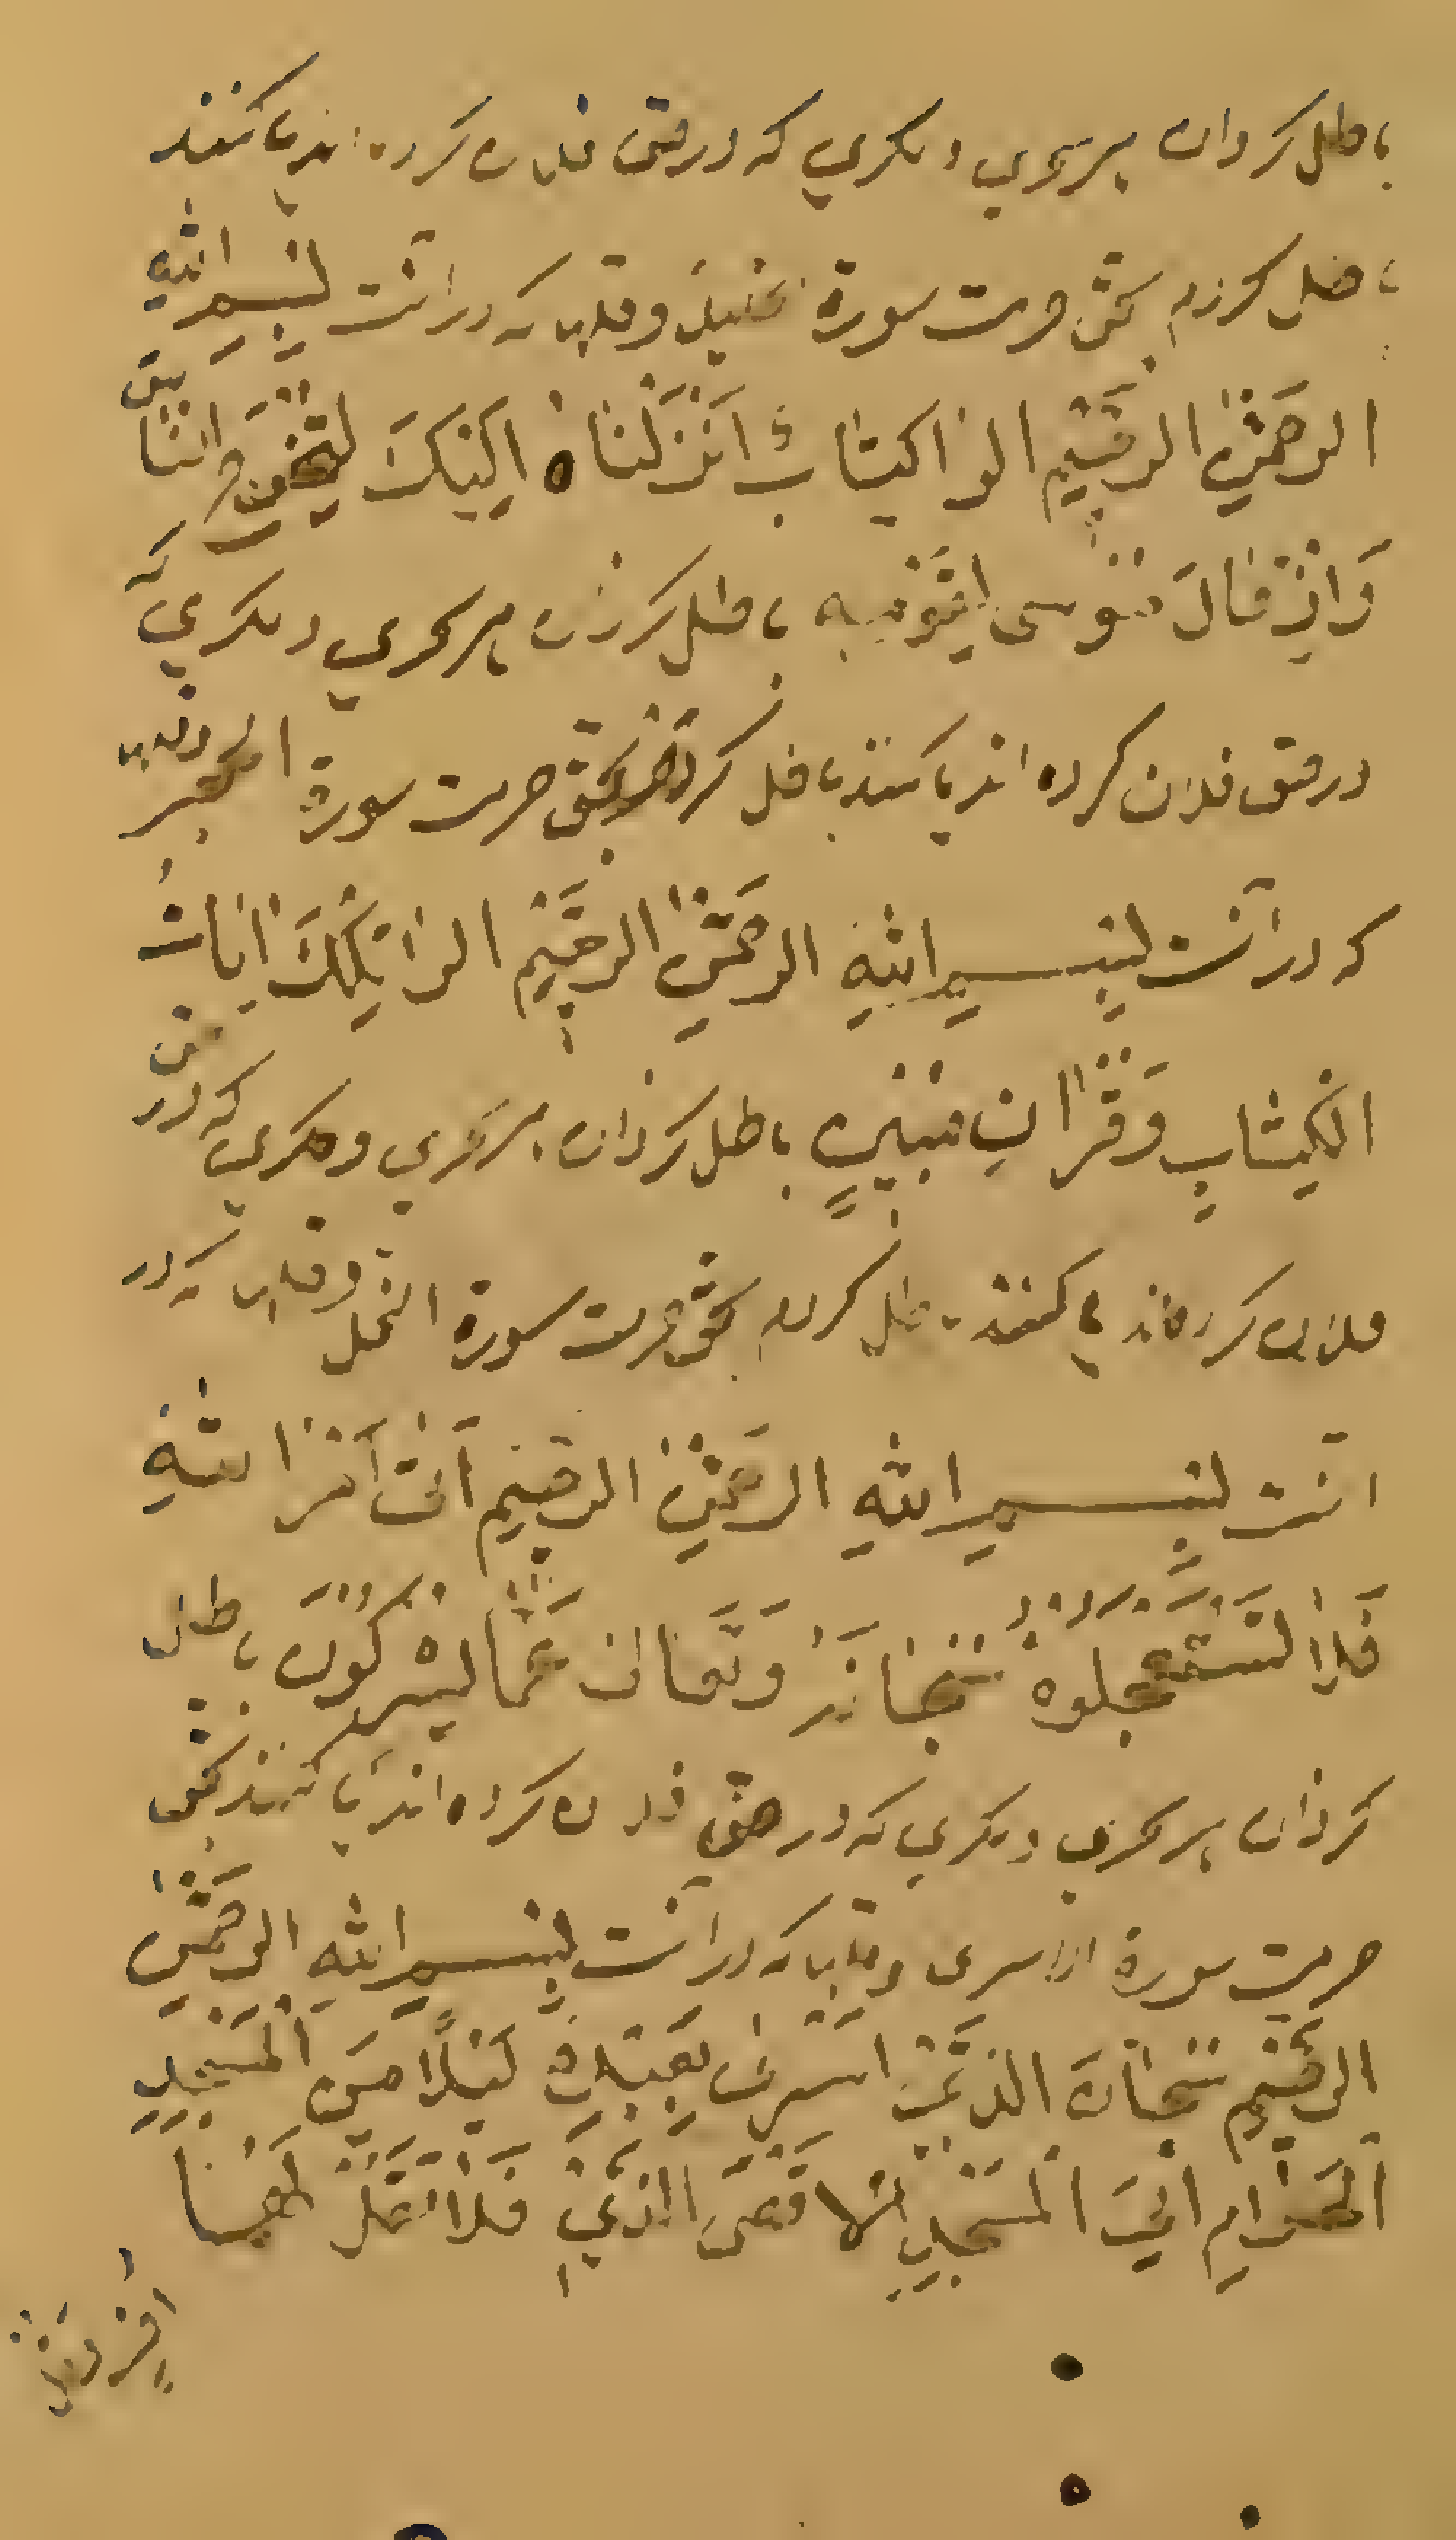 باطل کردان هر سحری و مکری که در حق فلان کرده اند یا کنند
باطل کردم بحق حرمت سورة خلیل و قلبها که در آنست بسم الله
الرحمن الرحیم الر اکتاب انزلناه الیک لتخرج الناس
واذ قال موسی لقومه باطل کردان هر سحری و مکری که
در حق فلان کرده اند یا کنند باطل کردم بحق حرمت سورة الحجر
که در آنست بسم الله الرحمن الرحیم الر تلک ایات
الکتاب وقران مبین باطل کردان هر سحری و مکری که در حق
فلان کرده اند یا کنند باطل کردم بحق حرمت سورة النحل و قلبها که در
انست بسم الله الرحمن الرحیم اتی امر الله
فلا تستعجلوه سبحانه وتعالی عما یشرکون باطل
کردان هر سحری و مکری که در حق فلان کرده اند یا کنند بحق
حرمت سورة الاسری و قلبها که در آنست بسم الله الرحمن
الرحیم سبحان الذی اسری بعبده لیلا من المسجد
الحرام الی المسجد الاقصی الذی